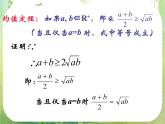 均值定理：如果a, b∈R⁺, 那么 $\frac{a+b}{2} \geq \sqrt{ab}$
（当且仅当a=b时，式中等号成立）
证明∵
∴ $a+b \geq 2\sqrt{ab}$
即： $\frac{a+b}{2} \geq \sqrt{ab}$
当且仅当a=b时 $\frac{a+b}{2} = \sqrt{ab}$